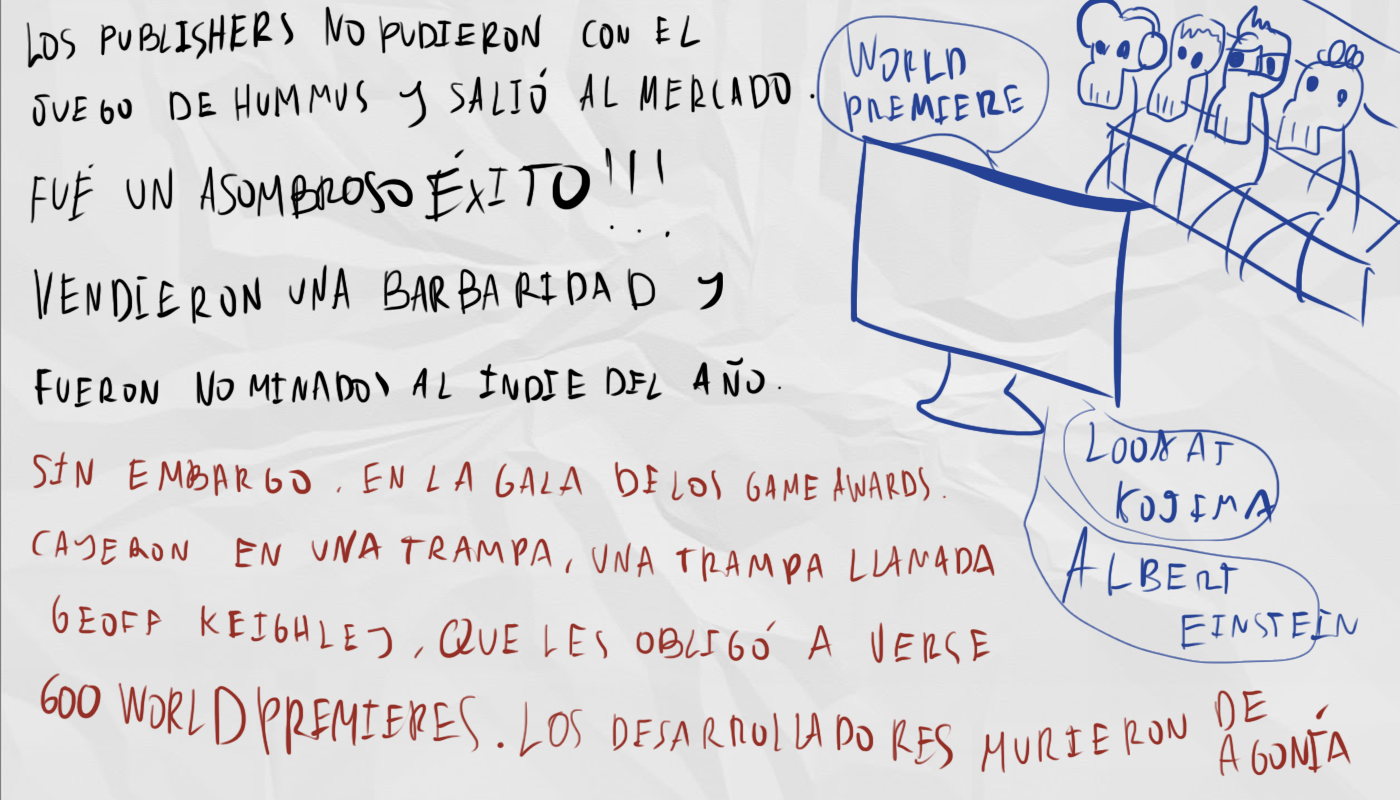 LOS PUBLISHERS NO PUDIERON CON EL
JUEGO DE HUMMUS Y SALIÓ AL MERCADO.
FUÉ UN ASOMBROSO ÉXITO!!!
VENDIERON UNA BARBARIDAD Y
FUERON NOMINADOS AL INDIE DEL AÑO.
SIN EMBARGO, EN LA GALA DE LOS GAME AWARDS.
CAYERON EN UNA TRAMPA, UNA TRAMPA LLAMADA
GEOFF KEIGHLEY, QUE LES OBLIGÓ A VERSE
600 WORLD PREMIERES. LOS DESARROLLADORES MURIERON DE
AGONÍA
WORLD
PREMIERE
LOOK AT
KOJIMA
ALBERT
EINSTEIN